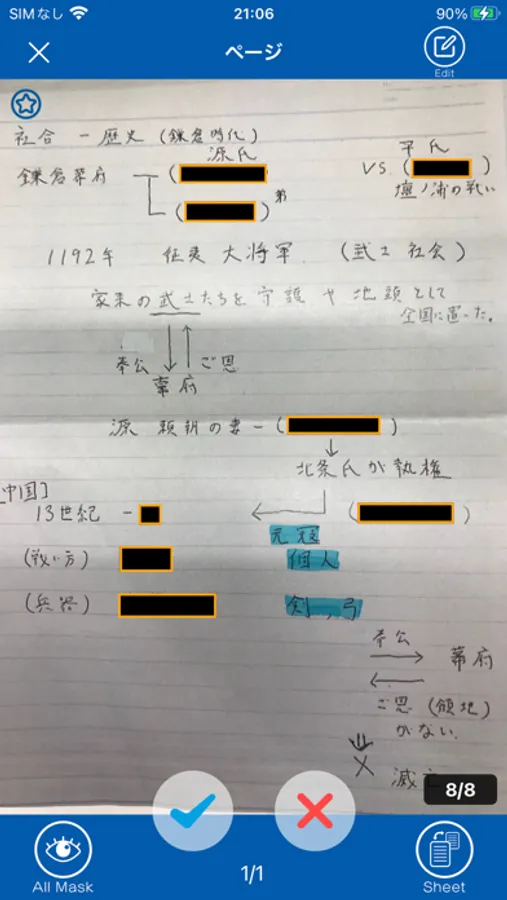 SIMなし 21:06 90%
ページ
Edit
社会 - 歴史 (鎌倉時代)
源氏 平氏
鎌倉幕府 ( ) VS ( )
( )弟 壇ノ浦の戦い
1192年 征夷大将軍 (武士社会)
家来の武士たちを守護や地頭として
全国に置った。
奉公 ご恩
幕府
源頼朝の妻 - ( )
北条氏が執権
[中国]
13世紀 - ( )
元寇
(戦い方) 個人
(兵器) 剣、弓
奉公
幕府
ご恩(領地)
がない。
× 滅亡
8/8
All Mask 1/1 Sheet